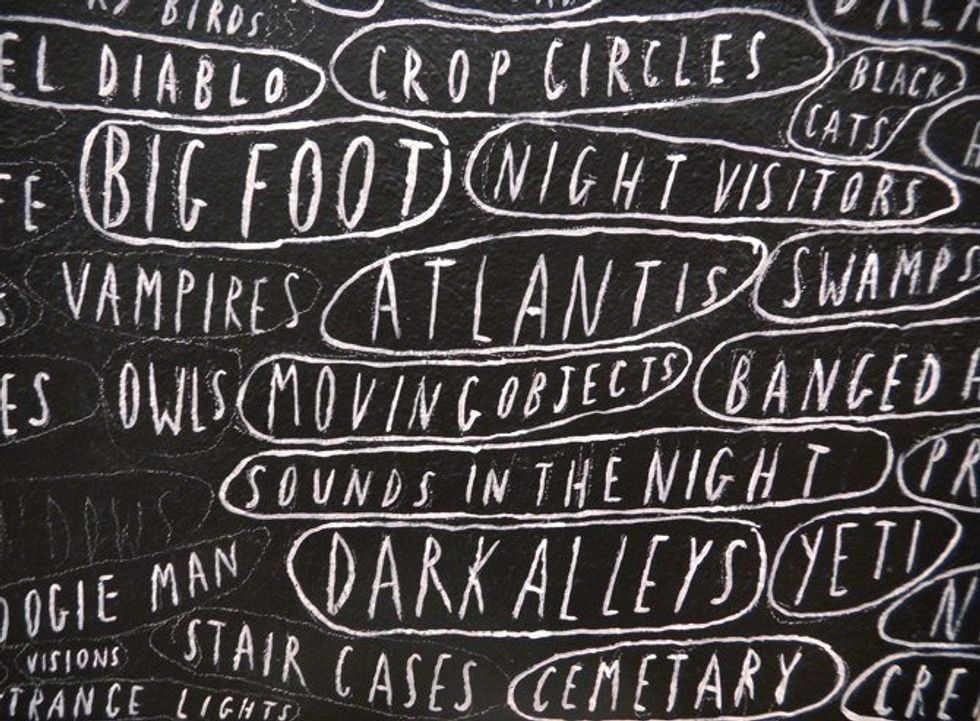 BIRDS
EL DIABLO
CROP CIRCLES
BLACK
CATS
BIG FOOT
NIGHT VISITORS
VAMPIRES
ATLANTIS
SWAMPS
OWLS
MOVING OBJECTS
BANGED
SOUNDS IN THE NIGHT
DARK ALLEYS
YETI
OOGIE MAN
STAIR CASES
VISIONS
CEMETARY
CRE
TRANGE LIGHTS